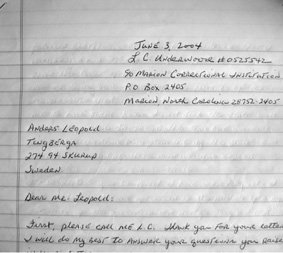 June 3, 2004
L C Underwood #0525542
90 Marion Correctional Institution
P O Box 2405
Marion, North Carolina 28752-2405
Anders Leopold
Tingberga
274 94 Skurup
Sweden
Dear Mr. Leopold:
First, please call me L.C. Thank you for your letter
I will do my best to answer your questions you